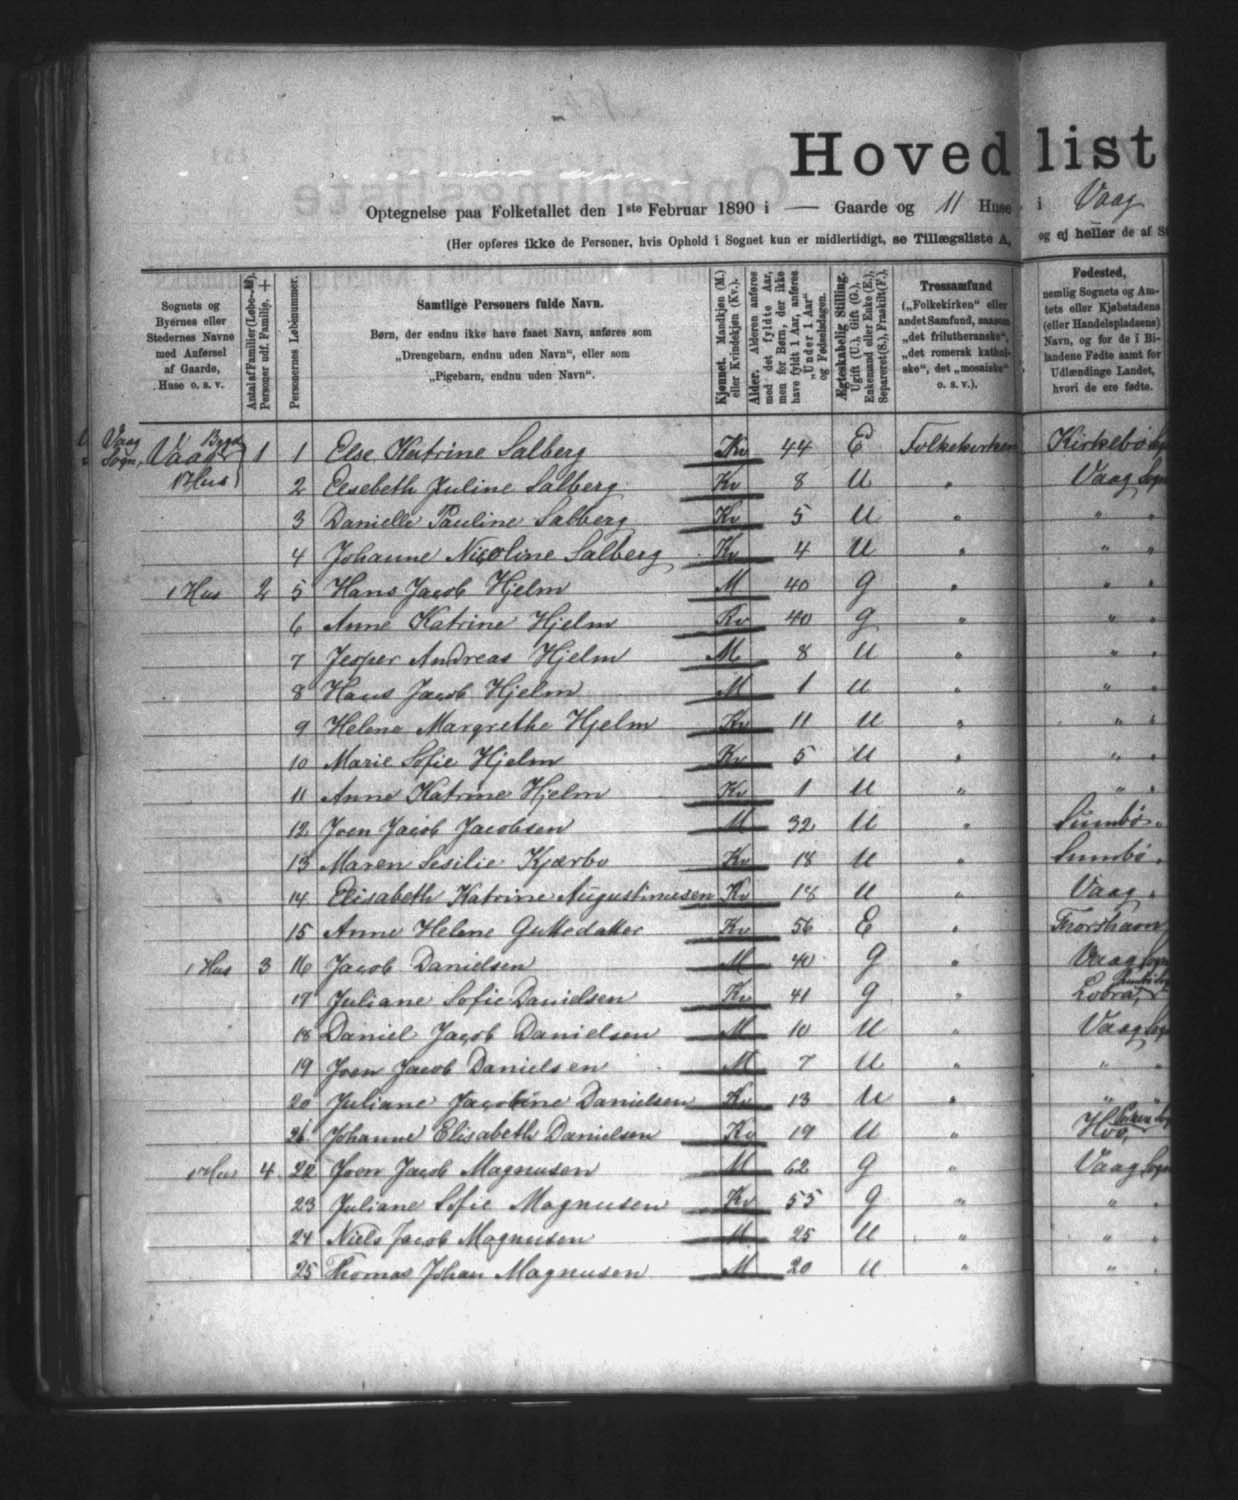 Hovedlist
Optegnelse paa Folketallet den 1ste Februar 1890 i — Gaarde og 11 Huse i Vaag
(Her opføres ikke de Personer, hvis Ophold i Sognet kun er midlertidigt, se Tillægsliste A, og ej heller de af
Sognets og Byernes eller Stedernes Navne med Anførsel af Gaarde, Huse o. s. v.
Antal af Familier (Løbe-№). Personer udf. Familie. +
Personernes Løbenummer.
Samtlige Personers fulde Navn.
Børn, der endnu ikke have faaet Navn, anføres som
„Drengebarn, endnu uden Navn“, eller som
„Pigebarn, endnu uden Navn“.
Kjønnet. Mandkjøn (M.) eller Kvindekjøn (Kv.).
Alder. Alderen anføres med det fyldte Aar, men for Børn, der ikke have fyldt 1 Aar, anføres „Under 1 Aar“ og Fødselsdagen.
Ægteskabelig Stilling. Ugift (U.), Gift (G.), Enkemand eller Enke (E.), Separeret (S.), Fraskilt (F.).
Trossamfund („Folkekirken“ eller andet Samfund, saasom „det frilutheranske“, „det romersk katholske“, det „mosaiske“ o. s. v.).
Fødested, nemlig Sognets og Amtets eller Kjøbstadens (eller Handelspladsens) Navn, og for de i Bilandene Fødte samt for Udlændinge Landet, hvori de ere fødte.
Vaag Sogn, Vaags Bygd 1 1 Else Katrine Salberg Kv 44 E Folkekirken Kirkebø
1 Hus 2 Elsebeth Juline Salberg Kv 8 U " Vaag Sogn
3 Danielle Pauline Salberg Kv 5 U " " "
4 Johanne Nicoline Salberg Kv 4 U " " "
1 Hus 2 5 Hans Jacob Hjelm M 40 G " " "
6 Anne Katrine Hjelm Kv 40 G " " "
7 Jesper Andreas Hjelm M 8 U " " "
8 Hans Jacob Hjelm M 1 U " " "
9 Helene Margrethe Hjelm Kv 11 U " " "
10 Marie Sofie Hjelm Kv 5 U " " "
11 Anne Katrine Hjelm Kv 1 U " " "
12 Joen Jacob Jacobsen M 32 U " Sumbø "
13 Maren Sesilie Kjærbo Kv 18 U " Sumbø "
14 Elisabeth Katrine Augustinusen Kv 18 U " Vaag "
15 Anne Helene Guttedatter Kv 56 E " Thorshavn
1 Hus 3 16 Jacob Danielsen M 40 G " Vaag Sogn
17 Juliane Sofie Danielsen Kv 41 G " Lobra,
18 Daniel Jacob Danielsen M 10 U " Vaag Sogn
19 Joen Jacob Danielsen M 7 U " " "
20 Juliane Jacobine Danielsen Kv 13 U " " "
21 Johanne Elisabeth Danielsen Kv 19 U " Hvo,
1 Hus 4 22 Joen Jacob Magnusen M 62 G " Vaag Sogn
23 Juliane Sofie Magnusen Kv 55 G " " "
24 Niels Jacob Magnusen M 25 U " " "
25 Thomas Johan Magnusen M 20 U " " "